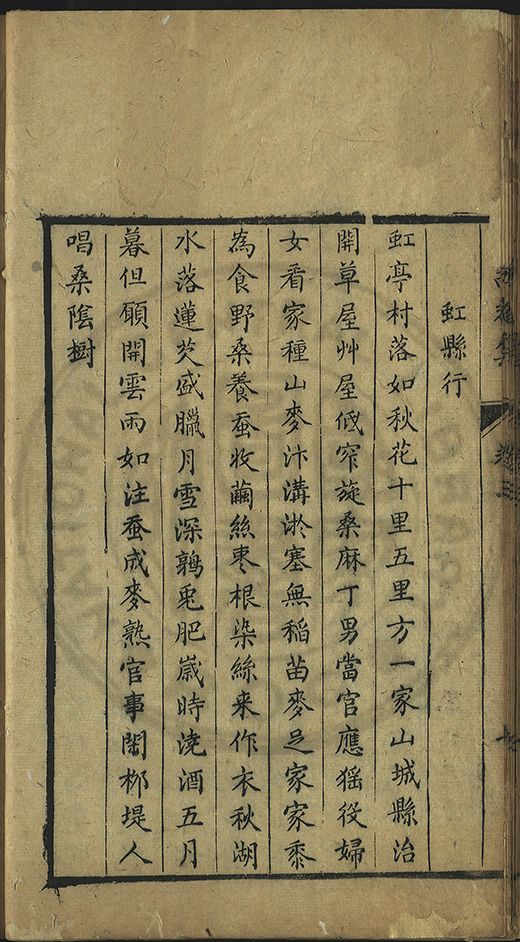 虹縣行
虹亭村落如秋花十里五里方一家山城縣治
開草屋艸屋低窄旋桑麻丁男當官應猺役婦
女看家種山麥汴溝淤塞無稻苗麥足家家黍
為食野桑養蚕收繭絲枣根染絲来作衣秋湖
水落蓮芡盛臘月雪深鶉兎肥歲時澆酒五月
暮但願開雲雨如注蚕成麥熟官事閑桞堤人
唱桑陰樹
集 卷三